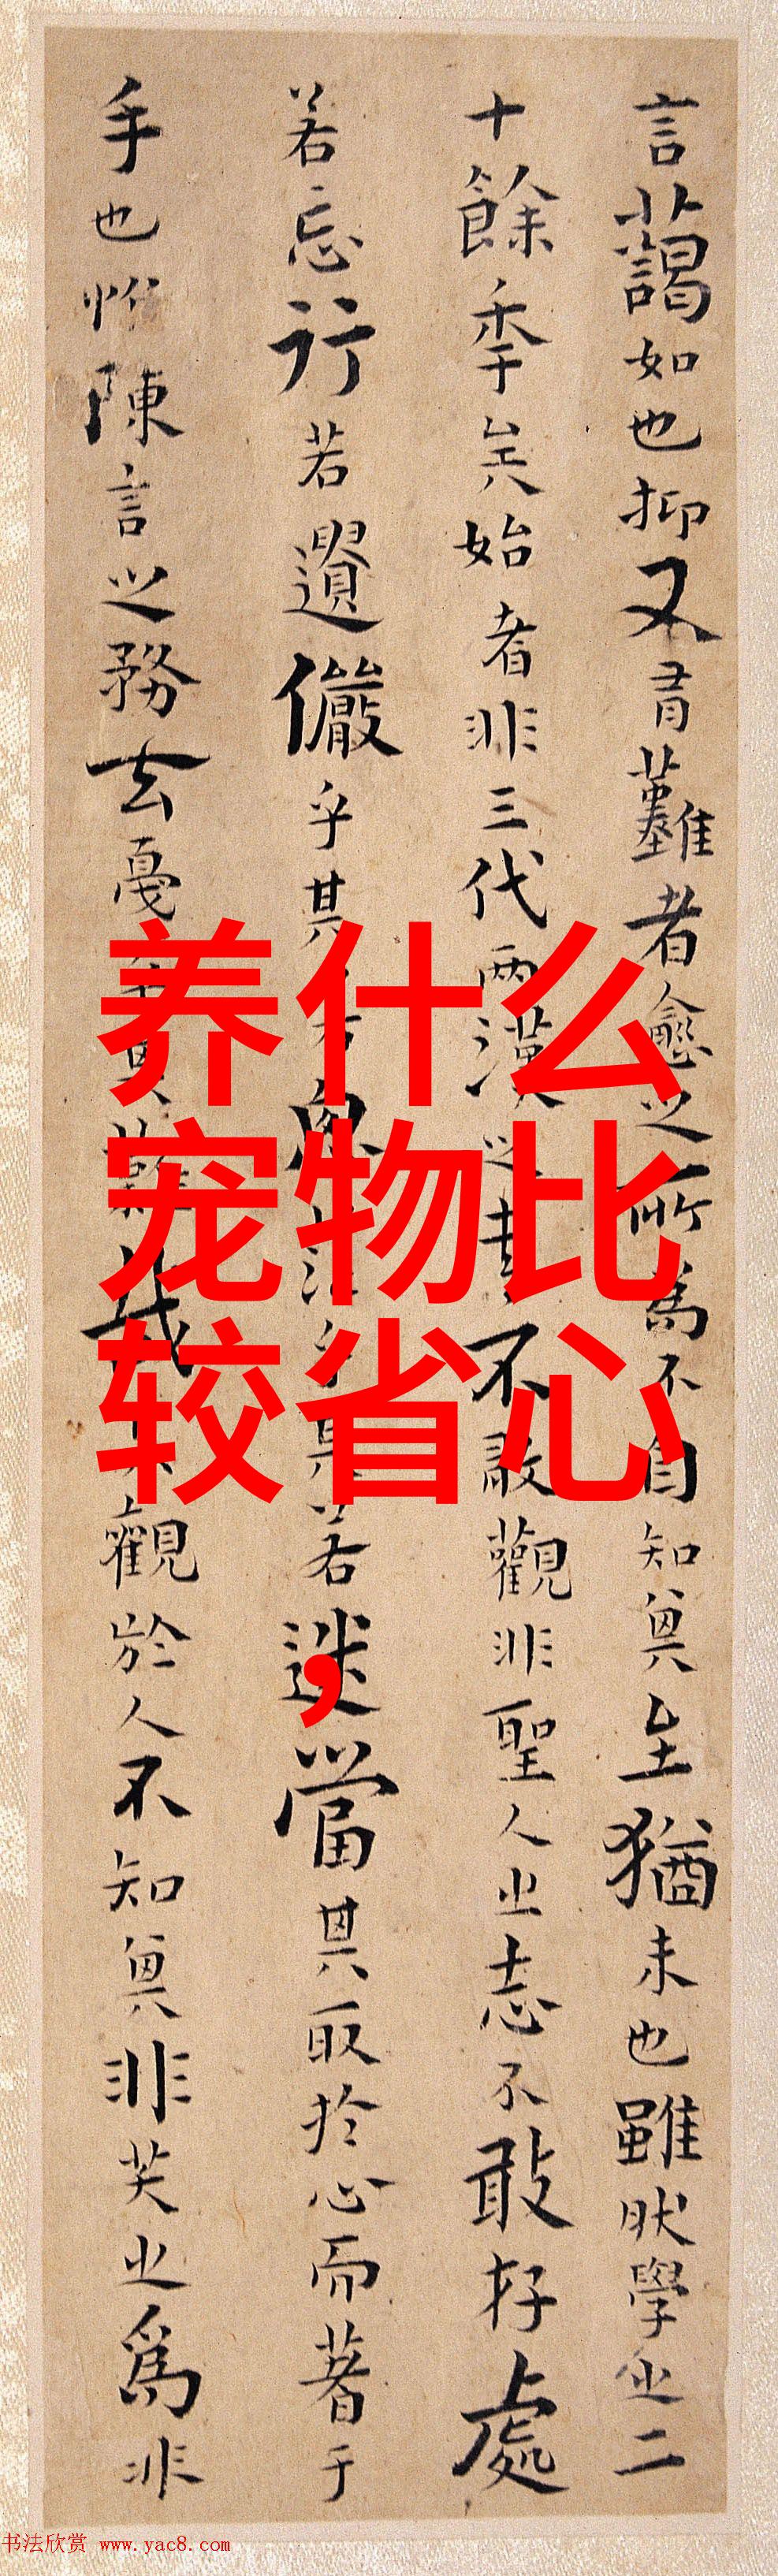 言藹如也抑又有難者愈之所為不自知其至猶未也雖然學之二
十餘年矣始者非三代兩漢之書不敢觀非聖人之志不敢存處
若忘行若遺儼乎其若思茫乎其若迷當其取於心而著于
手也惟陳言之務去戛乎其難哉其觀於人不知其非笑之為非
养什么
宠物比
较省心
，
书法欣赏 www.yac8.com